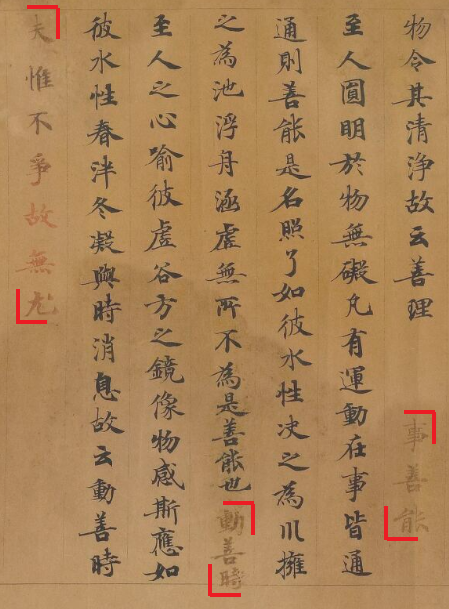 物令其清浄故云善理事善能
至人圓明於物無礙凡有運動在事皆通
通則善能是名照了如彼水性决之為川擁
之為池浮舟涵虛無所不為是善能也動善時
至人之心喻彼虛谷方之鏡像物感斯應如
彼水性春泮冬凝與時消息故云動善時
夫惟不爭故無尤